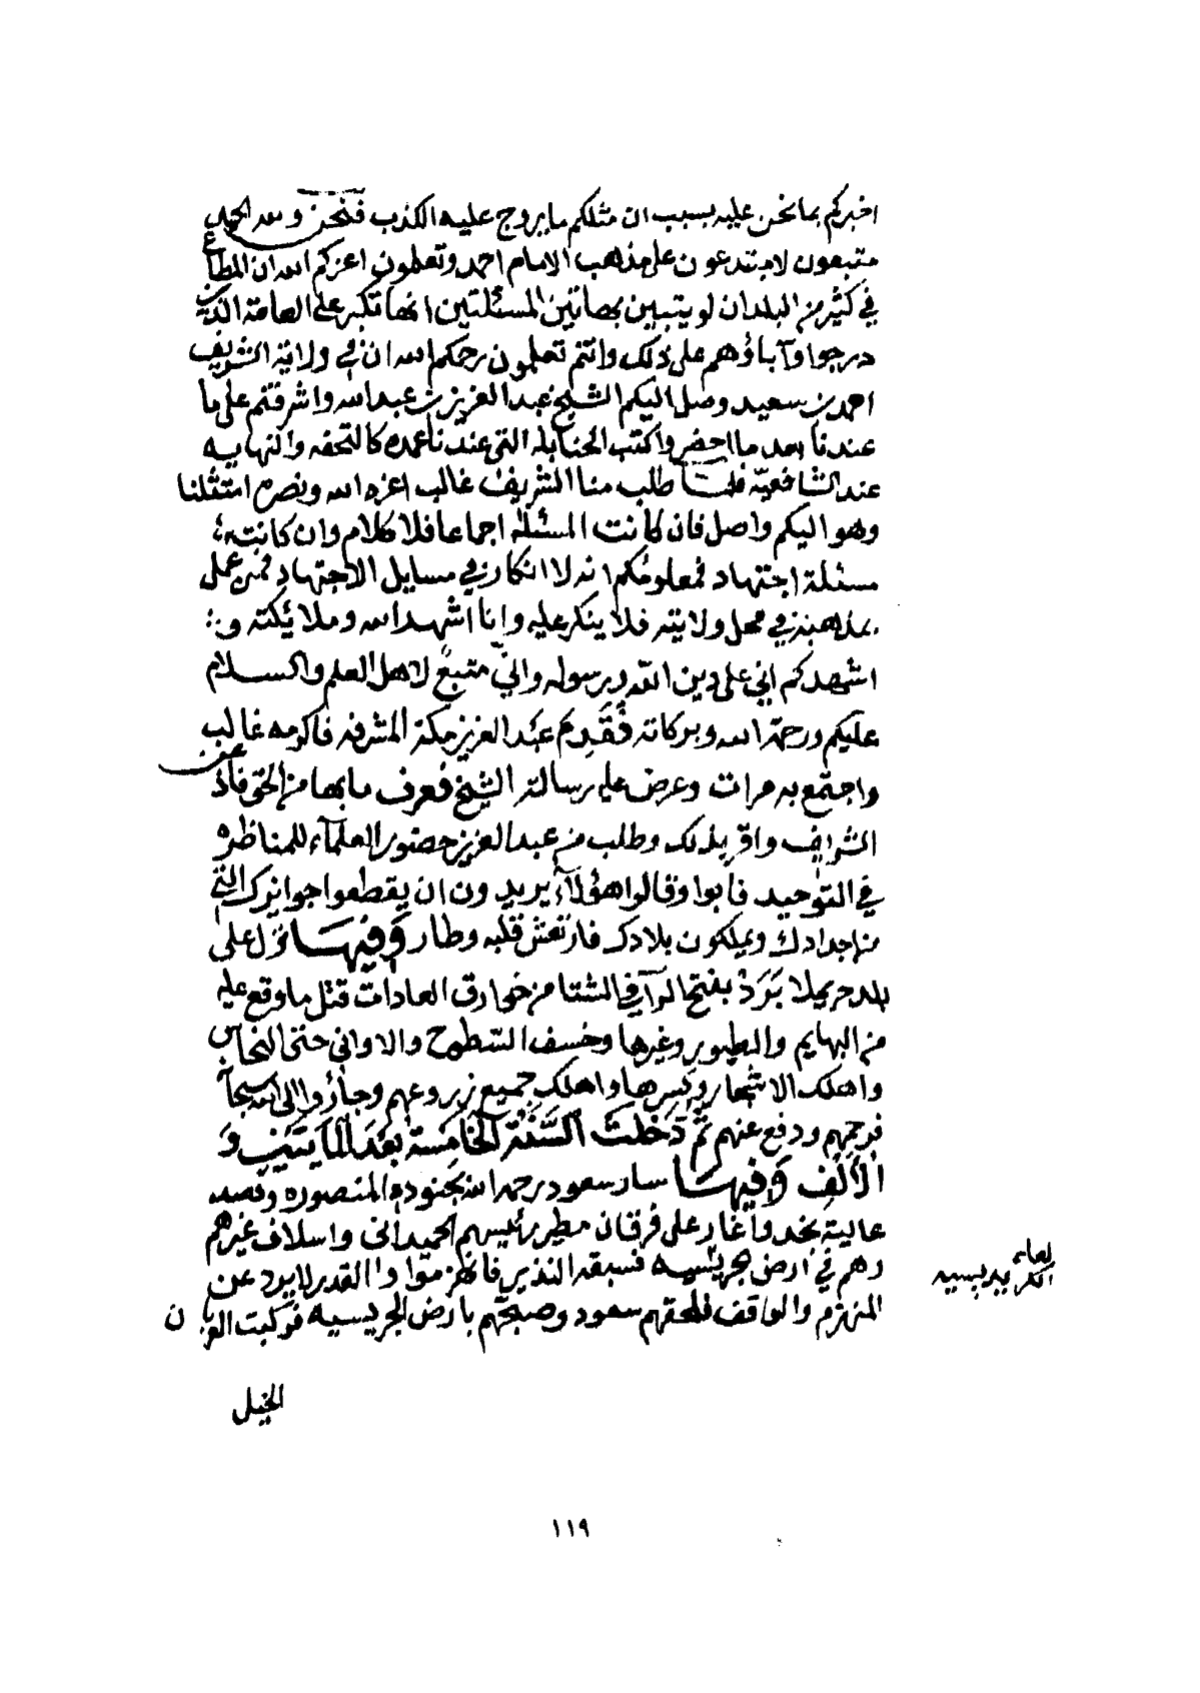 اخبركم بما نحن عليه بسبب ان مثلكم ما يروج عليه الكذب فنحن ولله الحمد
متبعون لا مبتدعون على مذهب الامام احمد وتعلمون اعزكم الله ان المطاع
في كثير من البلدان لو يتبين بهاتين المسئلتين انها تكبر على العامة الذين
درجوا وآباؤهم على ذلك وانتم تعلمون رحمكم الله ان في ولاية الشريف
احمد بن سعيد وصل اليكم الشيخ عبد العزيز بن عبد الله واشرفتم على ما
عندنا بعد ما احضروا كتب الحنابلة التي عندنا عمده كالتحفه والنهايه
عند الشافعيّه فلما طلب منا الشريف غالب اعزه الله ونصره امتثلنا
وهو اليكم واصل فان كانت المسئلة اجماعا فلا كلام وان كانت
مسئلة اجتهاد فمعلومكم انه لا انكار في مسايل الاجتهاد فمن عمل
بمذهبه في محل ولايته فلا ينكر عليه وانا اشهد الله وملائكته و
اشهدكم اني على دين الله ورسوله واني متبعٌ لاهل العلم والسلام
عليكم ورحمة الله وبركاته فَقَدِمَ عبد العزيز مكة المشرفه فاكرمه غالب
واجتمع به مرات وعرض عليه رسالة الشيخ فعرف ما بها من الحق فاذعن
الشريف واقر بذلك وطلب من عبد العزيز حضور العلمآء للمناظره
في التوحيد فابوا وقالوا هؤلآء يريدون ان يقطعوا جوائزك التي
من اجدادك ويملكون بلادك فارتعش قلبه وطار وَفِيهَا نزل على
بلد حريملا بَرَدٌ بفتح الرآء في الشتا من خوارق العادات قتل ما وقع عليه
من البهايم والطيور وغيرها وخسف السطوح والاواني حتى النحاس
واهلك الاشجار وكسرها واهلك جميع زروعهم وجأروا الى الله سبحانه
فرحمهم ودفع عنهم ثُمَّ دَخَلَتْ السَّنَةُ الخَامِسَة بَعْدَ المَايتَيْنِ وَ
الأَلْفِ وَفِيهَا سار سعود رحمه الله بجنوده المنصوره وقصد
عالية نجد واغار على فرقان مطير رئيسهم الحميداني واسلاف غيرهم
وهم في ارض الجريسيه فسبقه النذير فانهزموا والقدر لا يرد عن
لعله
المنهزم والواقف فلحقهم سعود وصبحهم بارض الجريسيه فركبت العربان
الخيل
١١٩